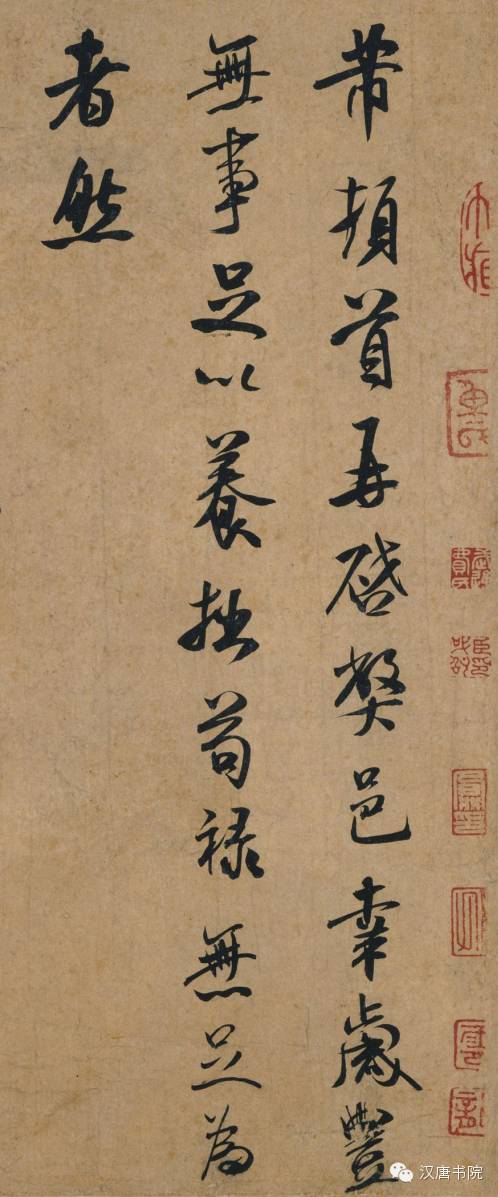 芾頓首再啓弊邑幸歲豐
無事足以養拙苟祿無足爲
者然
汉唐书院